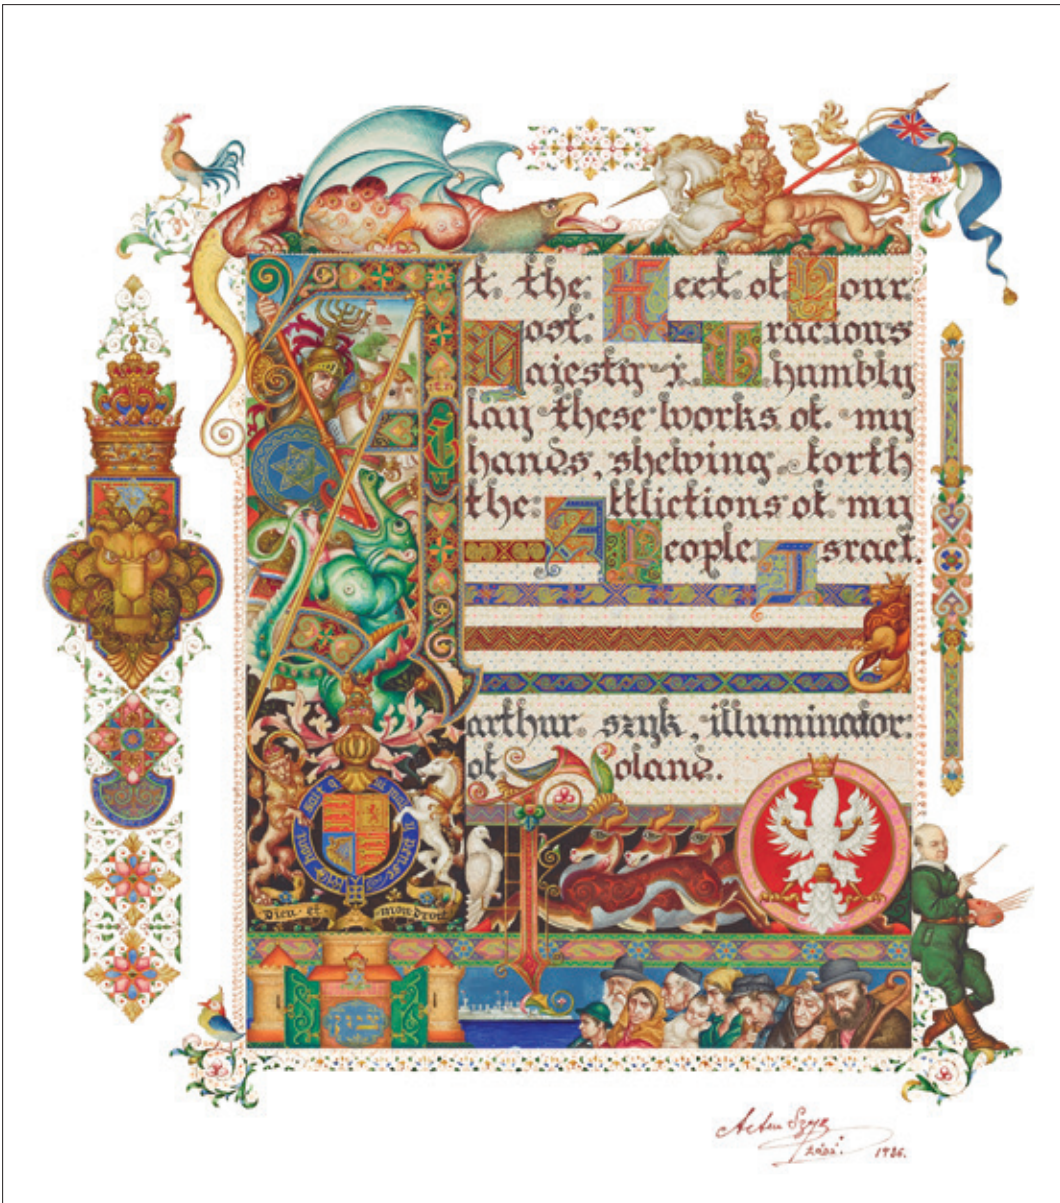 At the Feet of Your
Most Gracious
Majesty i humbly
lay these works of my
hands, shewing forth
the Afflictions of my
People Israel.
arthur szyk, illuminator
of Poland.
VI
honi soit q mal y pense
Dieu et mon droit
ציון
Arthur Szyk
Łódź. 1936.